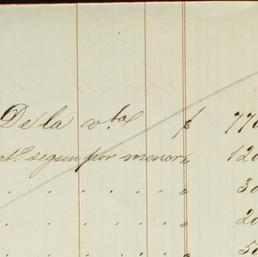 De la v.ta $ 770
segun por menor " 120
. . . . . " 30
. . . . . " 20
. . . . . " 50